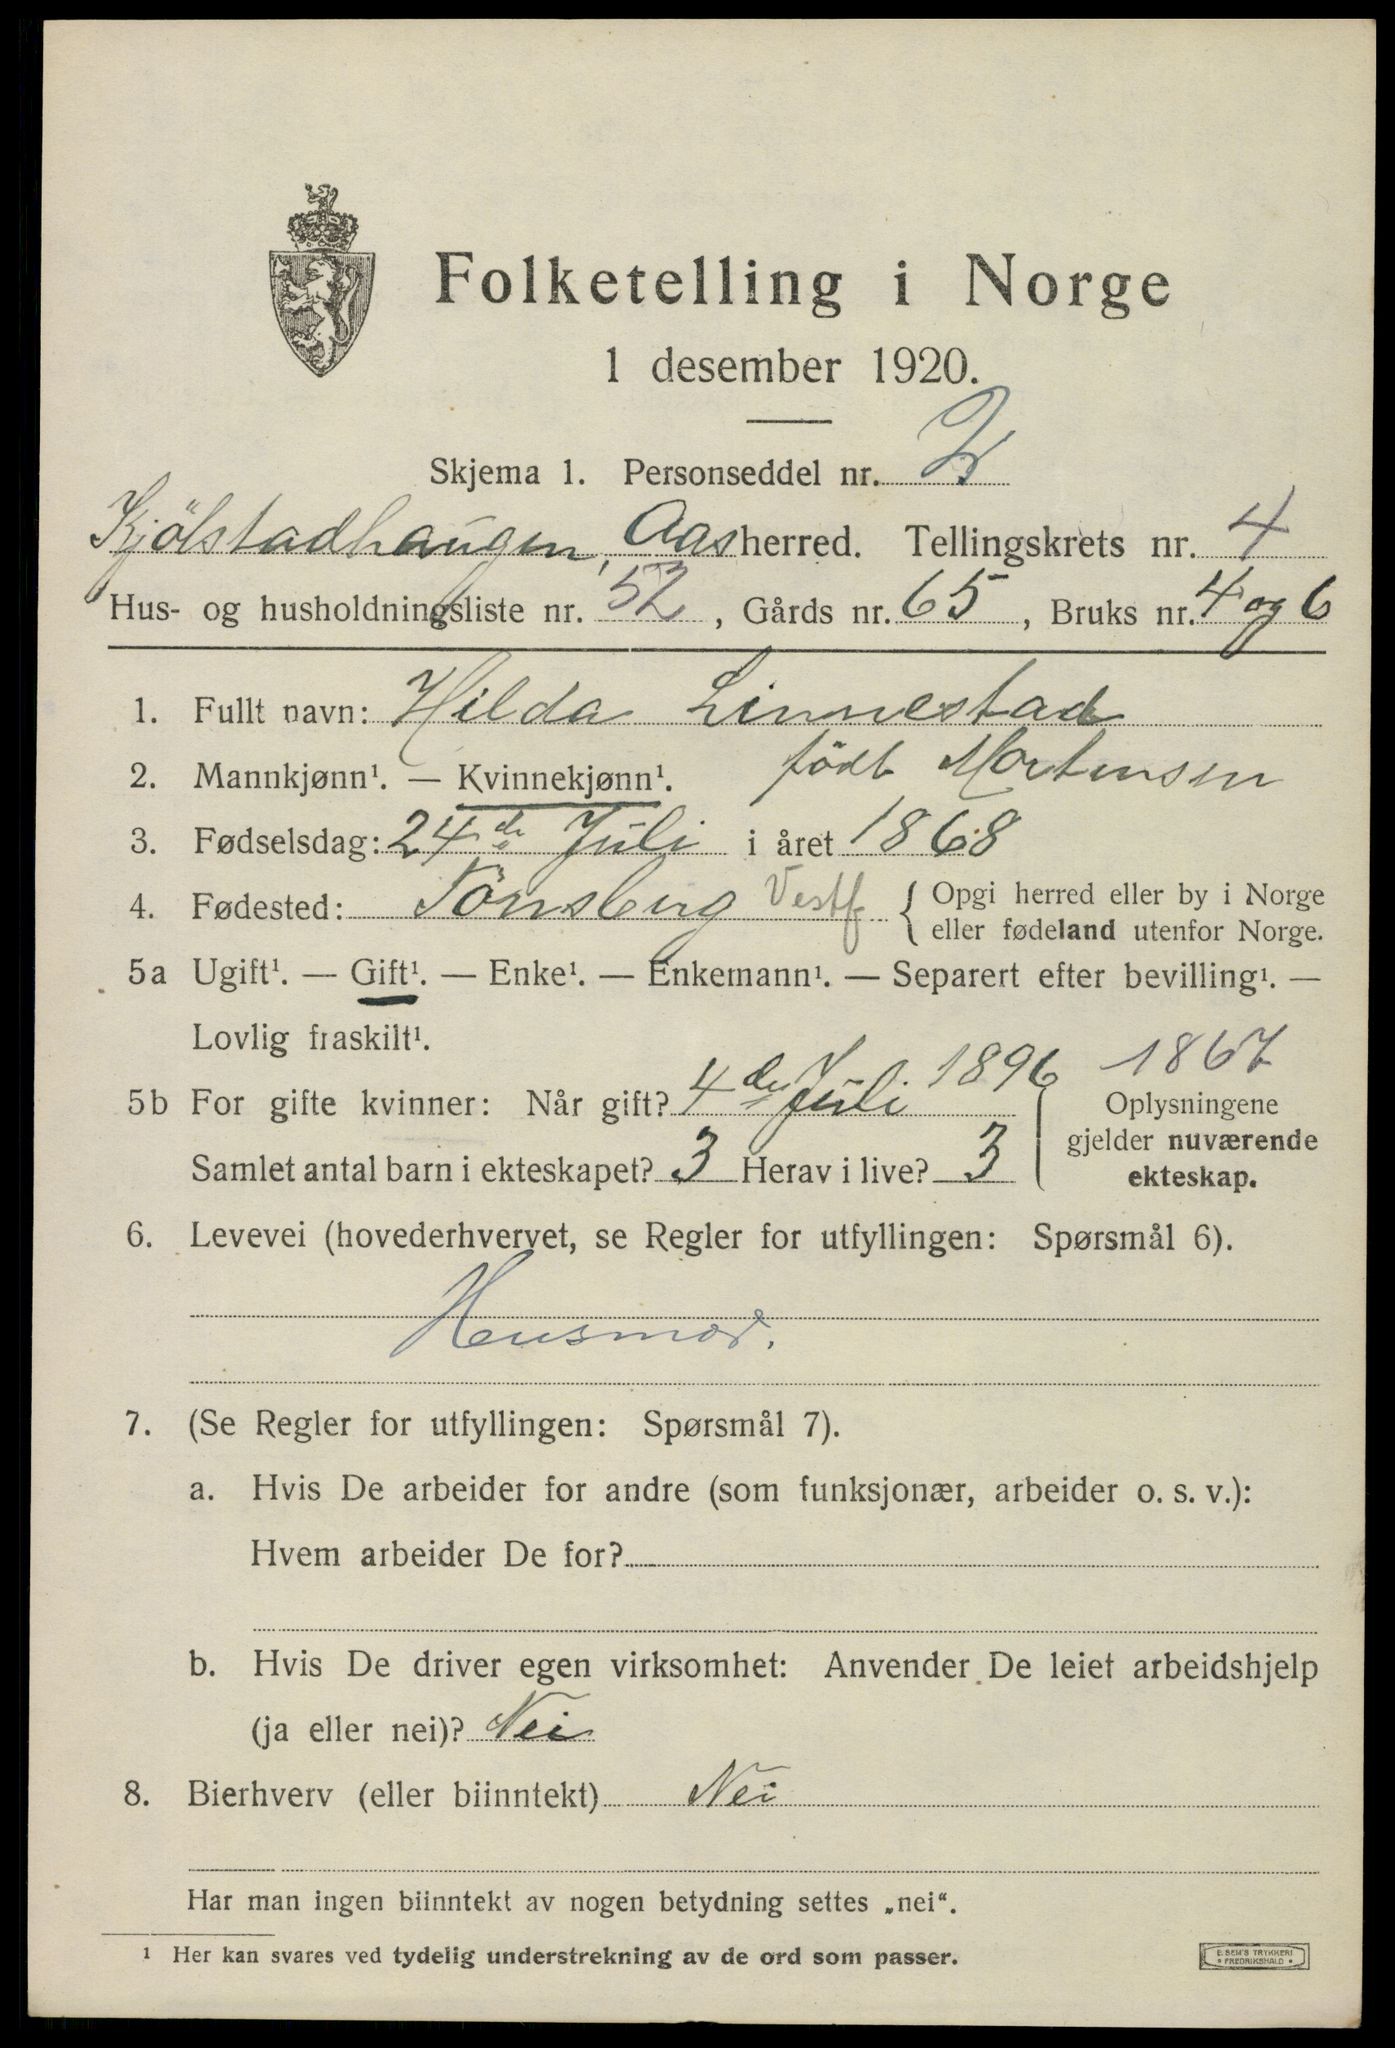 Folketelling i Norge
1 desember 1920.
Skjema 1. Personseddel nr. 2
Kjölstadhaugen, Aas herred. Tellingskrets nr. 4
Hus- og husholdningsliste nr. 52, Gårds nr. 65, Bruks nr. 4 og 6
1. Fullt navn: Hilda Linnestad
födt Mortensen
2. Mannkjønn¹. — Kvinnekjønn¹.
3. Fødselsdag: 24de Juli i året 1868
4. Fødested: Tönsberg Vestf { Opgi herred eller by i Norge
eller fødeland utenfor Norge.
5a Ugift¹. — Gift¹. — Enke¹. — Enkemann¹. — Separert efter bevilling¹. —
Lovlig fraskilt¹.
5b For gifte kvinner: Når gift? 4de Juli 1896
Samlet antal barn i ekteskapet? 3 Herav i live? 3
1867
Oplysningene
gjelder nuværende
ekteskap.
6. Levevei (hovederhvervet, se Regler for utfyllingen: Spørsmål 6).
Husmor.
7. (Se Regler for utfyllingen: Spørsmål 7).
a. Hvis De arbeider for andre (som funksjonær, arbeider o. s. v.):
Hvem arbeider De for?
b. Hvis De driver egen virksomhet: Anvender De leiet arbeidshjelp
(ja eller nei)? Nei
8. Bierhverv (eller biinntekt) Nei
Har man ingen biinntekt av nogen betydning settes „nei“.
¹ Her kan svares ved tydelig understrekning av de ord som passer.
E. SEM'S TRYKKERI
• FREDRIKSHALD •